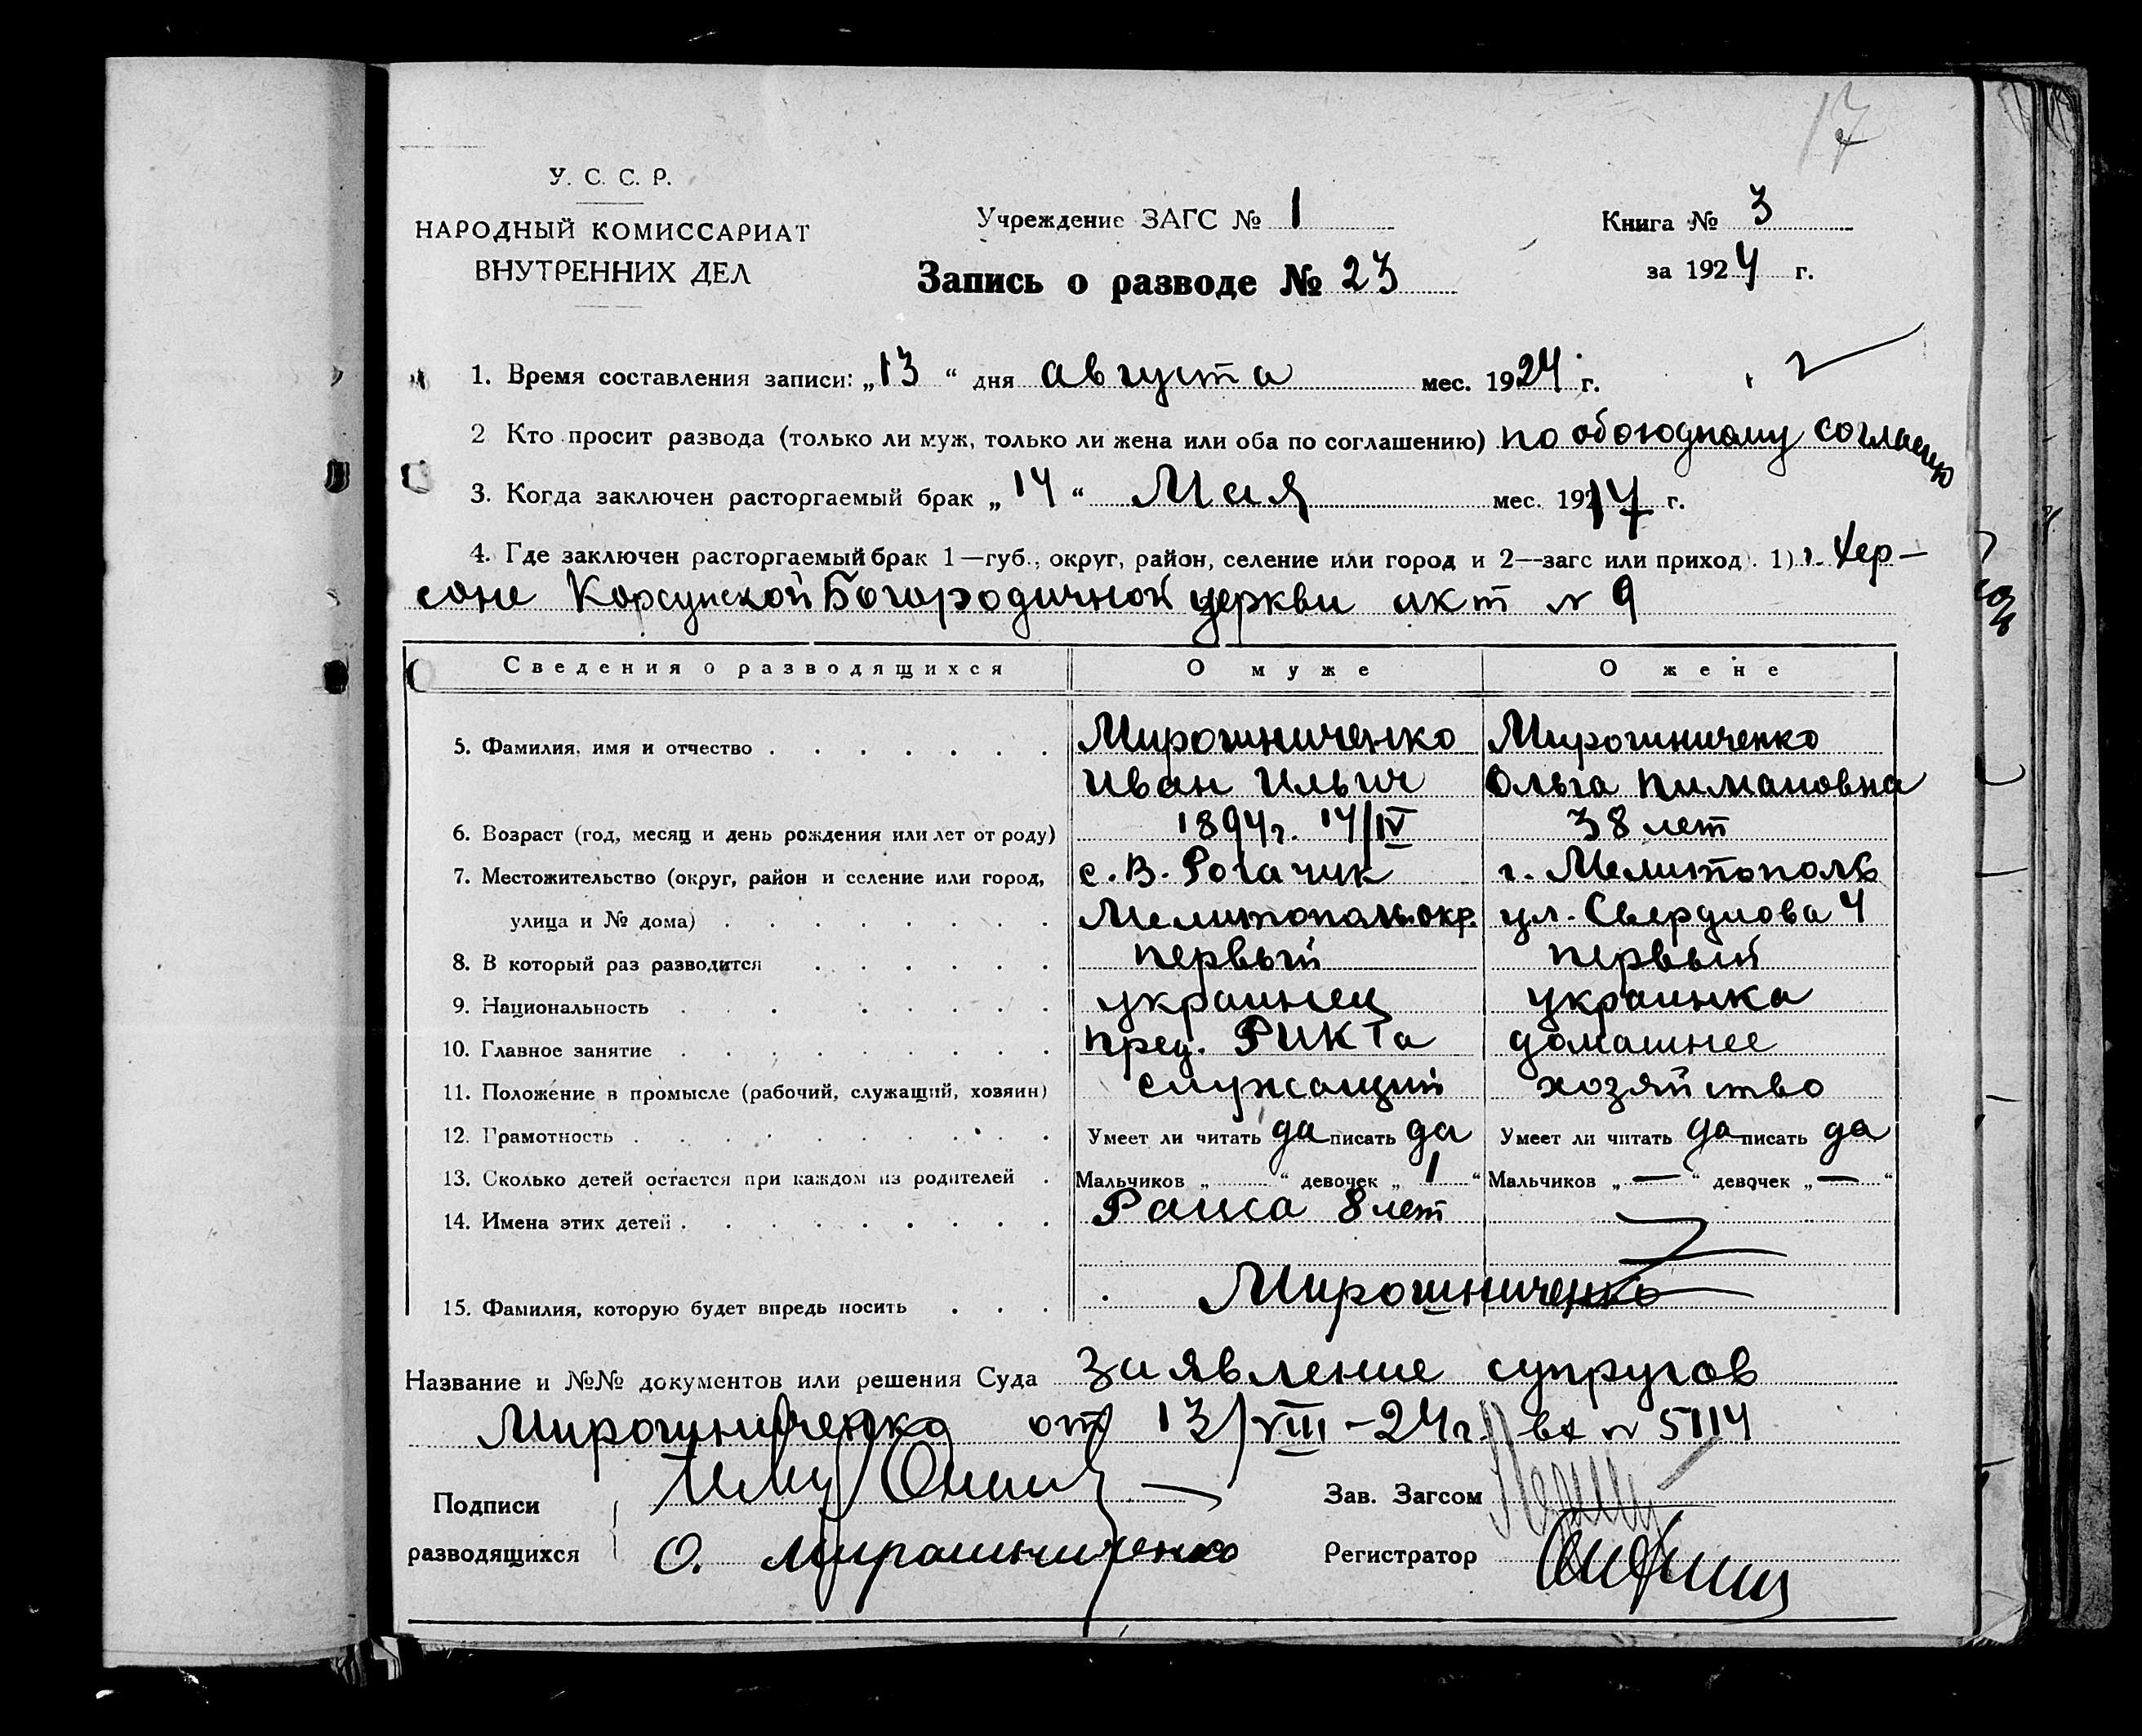 17
У. С. С. Р.
НАРОДНЫЙ КОМИССАРИАТ
ВНУТРЕННИХ ДЕЛ
Учреждение ЗАГС № 1
Запись о разводе № 23
Книга № 3
за 1924 г.
1. Время составления записи: „13“ дня августа мес. 1924 г.
2 Кто просит развода (только ли муж, только ли жена или оба по соглашению) по обоюдному согласию
3. Когда заключен расторгаемый брак „14“ Мая мес. 1917 г.
4. Где заключен расторгаемый брак 1—губ., округ, район, селение или город и 2—загс или приход). 1) г. Хер-
соне Корсунской Богородичной церкви акт № 9
Сведения о разводящихся О муже О жене
5. Фамилия, имя и отчество Мирошниченко Мирошниченко
Иван Ильич Ольга Пимановна
6. Возраст (год, месяц и день рождения или лет от роду) 1894 г. 14/IV 38 лет
7. Местожительство (округ, район и селение или город, с. В. Рогачик г. Мелитополь
улица и № дома) Мелитополь.окр. ул. Свердлова 4
8. В который раз разводится первый первый
9. Национальность украинец украинка
10. Главное занятие пред. РИКТа домашнее
11. Положение в промысле (рабочий, служащий, хозяин) служащий хозяйство
12. Грамотность Умеет ли читать да писать да Умеет ли читать да писать да
13. Сколько детей остается при каждом из родителей Мальчиков „ “ девочек „ 1 “ Мальчиков „ — “ девочек „ — “
14. Имена этих детей Раиса 8 лет
15. Фамилия, которую будет впредь носить Мирошниченко
Название и №№ документов или решения Суда Заявление супругов
Мирошниченко от 13/VIII-24 г. вх № 5114
Подписи
разводящихся О. Мирошниченко
Зав. Загсом
Регистратор